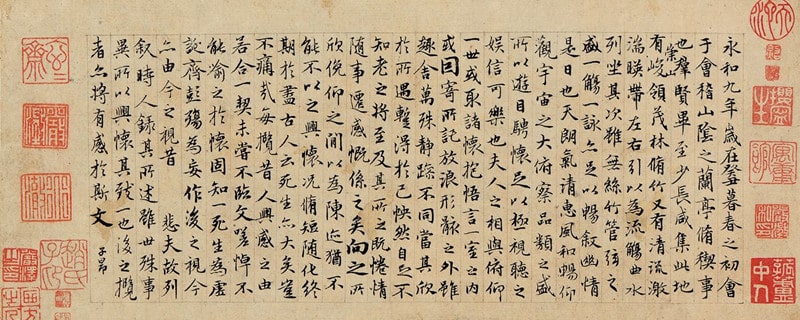 永和九年歲在癸丑暮春之初會
于會稽山陰之蘭亭脩稧事
也群賢畢至少長咸集此地
有崇山峻領茂林脩竹又有清流激
湍暎帶左右引以為流觴曲水
列坐其次雖無絲竹管弦之
盛一觴一詠亦足以暢叙幽情
是日也天朗氣清惠風和暢仰
觀宇宙之大俯察品類之盛
所以遊目騁懷足以極視聽之
娛信可樂也夫人之相與俯仰
一世或取諸懷抱悟言一室之內
或因寄所託放浪形骸之外雖
趣舍萬殊靜躁不同當其欣
於所遇蹔得於己怏然自足不
知老之將至及其所之既惓情
隨事遷感慨係之矣向之所
欣俛仰之間以為陳迹猶不
能不以之興懷況脩短隨化終
期於盡古人云死生亦大矣豈
不痛哉每攬昔人興感之由
若合一契未嘗不臨文嗟悼不
能喻之於懷固知一死生為虛
誕齊彭殤為妄作後之視今
亦由今之視昔 悲夫故列
叙時人錄其所述雖世殊事
異所以興懷其致一也後之攬
者亦將有感於斯文
子昂